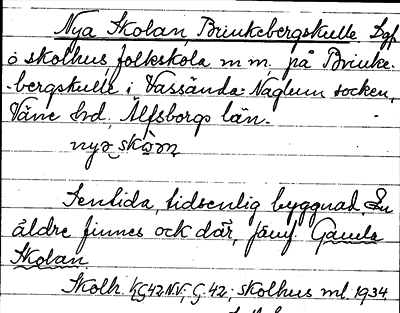 Nya Skolan, Brinkebergskulle Dgf
o skolhus, folkskola m m. på Brinke-
-bergskulle i Vassända-Naglum socken,
Väne hd, Älfsborgs län.
nya skòrn
Sentida, tidsenlig byggnad. En
äldre finnes ock där, jämf. Gamla
Skolan
Skolh. KG42NV; G. 42; skolhus ml. 1934